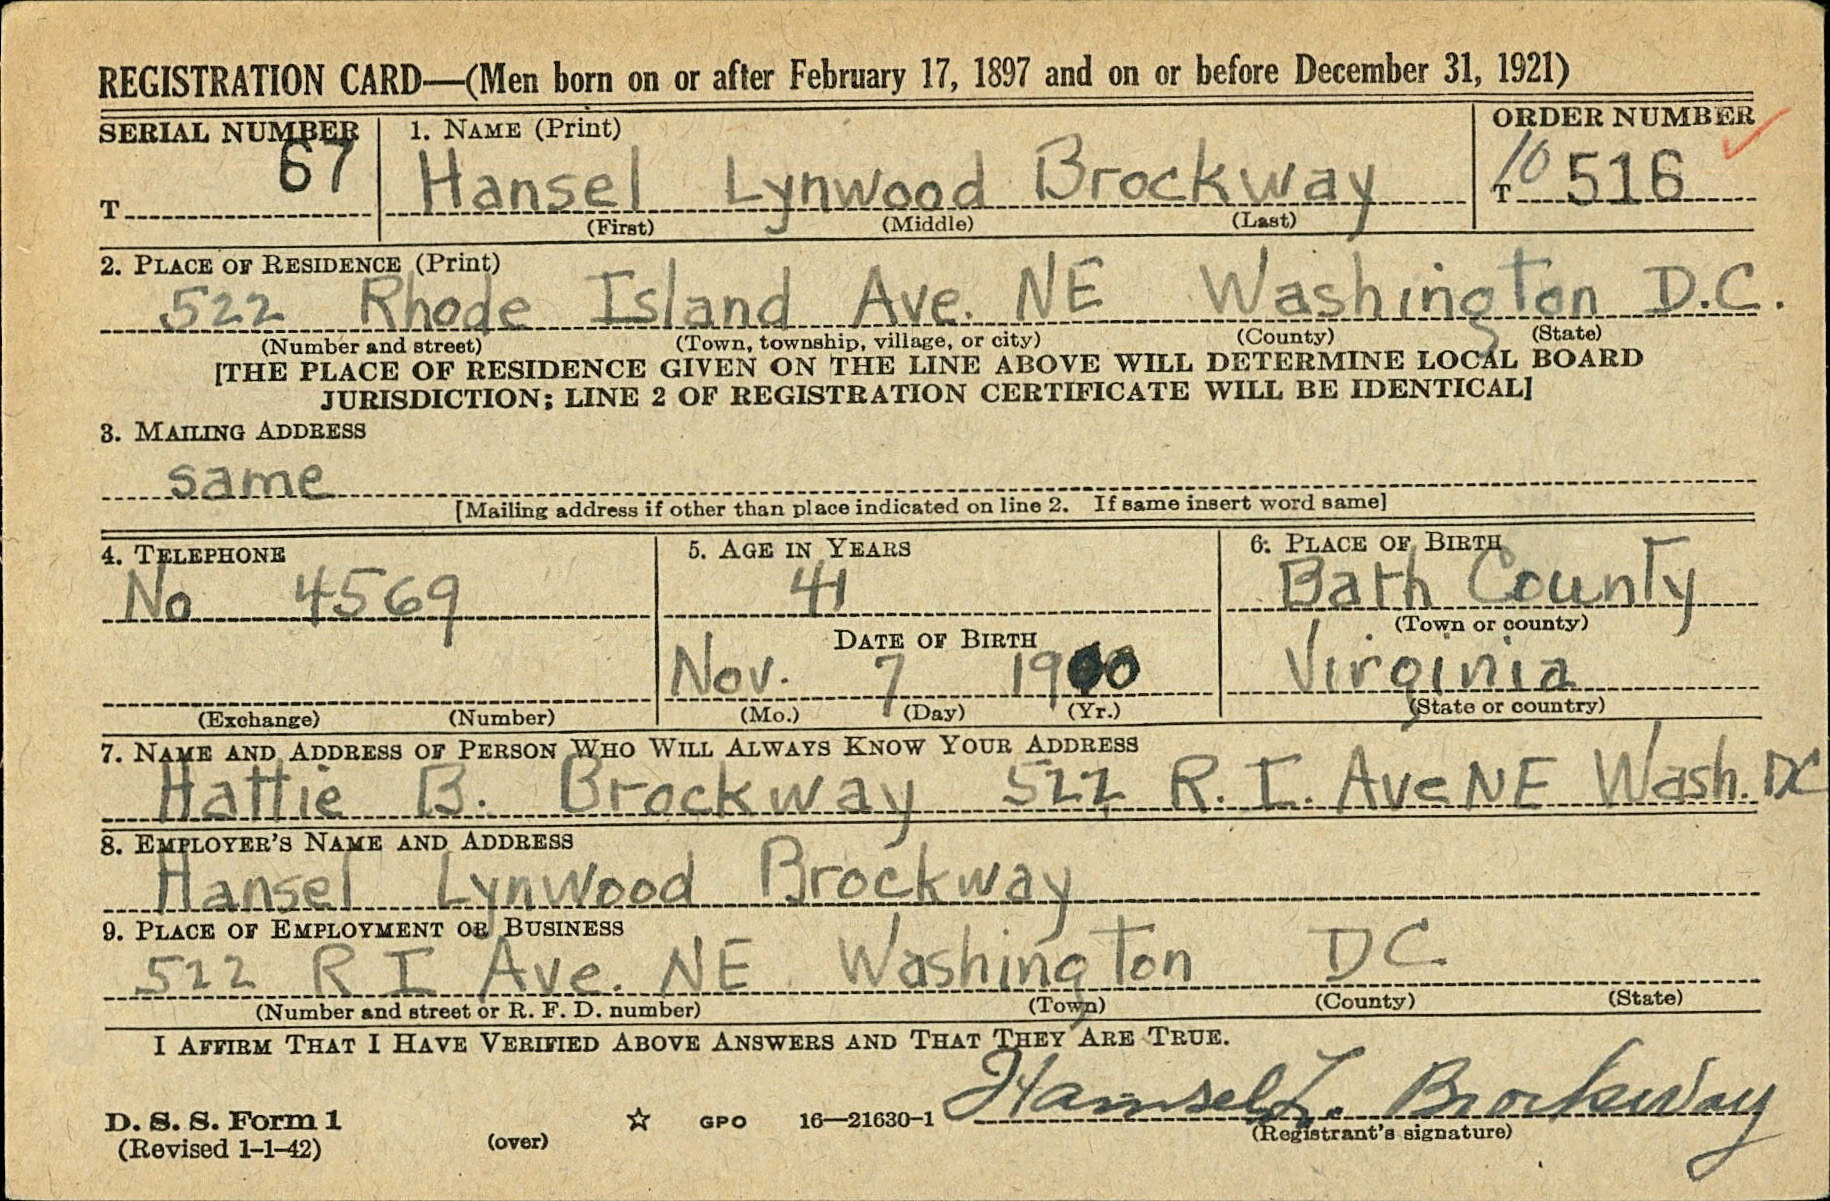 REGISTRATION CARD—(Men born on or after February 17, 1897 and on or before December 31, 1921)
SERIAL NUMBER 1. NAME (Print) ORDER NUMBER
T 67 Hansel Lynwood Brockway 10 T 516
(First) (Middle) (Last)
2. PLACE OF RESIDENCE (Print)
522 Rhode Island Ave. NE Washington D.C.
(Number and street) (Town, township, village, or city) (County) (State)
[THE PLACE OF RESIDENCE GIVEN ON THE LINE ABOVE WILL DETERMINE LOCAL BOARD
JURISDICTION; LINE 2 OF REGISTRATION CERTIFICATE WILL BE IDENTICAL]
3. MAILING ADDRESS
same
[Mailing address if other than place indicated on line 2. If same insert word same]
4. TELEPHONE 5. AGE IN YEARS 6. PLACE OF BIRTH
No 4569 41 Bath County
(Town or county)
DATE OF BIRTH
Nov. 7 1900 Virginia
(Exchange) (Number) (Mo.) (Day) (Yr.) (State or country)
7. NAME AND ADDRESS OF PERSON WHO WILL ALWAYS KNOW YOUR ADDRESS
Hattie B. Brockway 522 R. I. Ave NE Wash. DC
8. EMPLOYER'S NAME AND ADDRESS
Hansel Lynwood Brockway
9. PLACE OF EMPLOYMENT OR BUSINESS
522 R I Ave. NE Washington DC
(Number and street or R. F. D. number) (Town) (County) (State)
I AFFIRM THAT I HAVE VERIFIED ABOVE ANSWERS AND THAT THEY ARE TRUE.
Hansel L. Brockway
D. S. S. Form 1 ☆ GPO 16—21630-1 (Registrant's signature)
(Revised 1-1-42) (over)